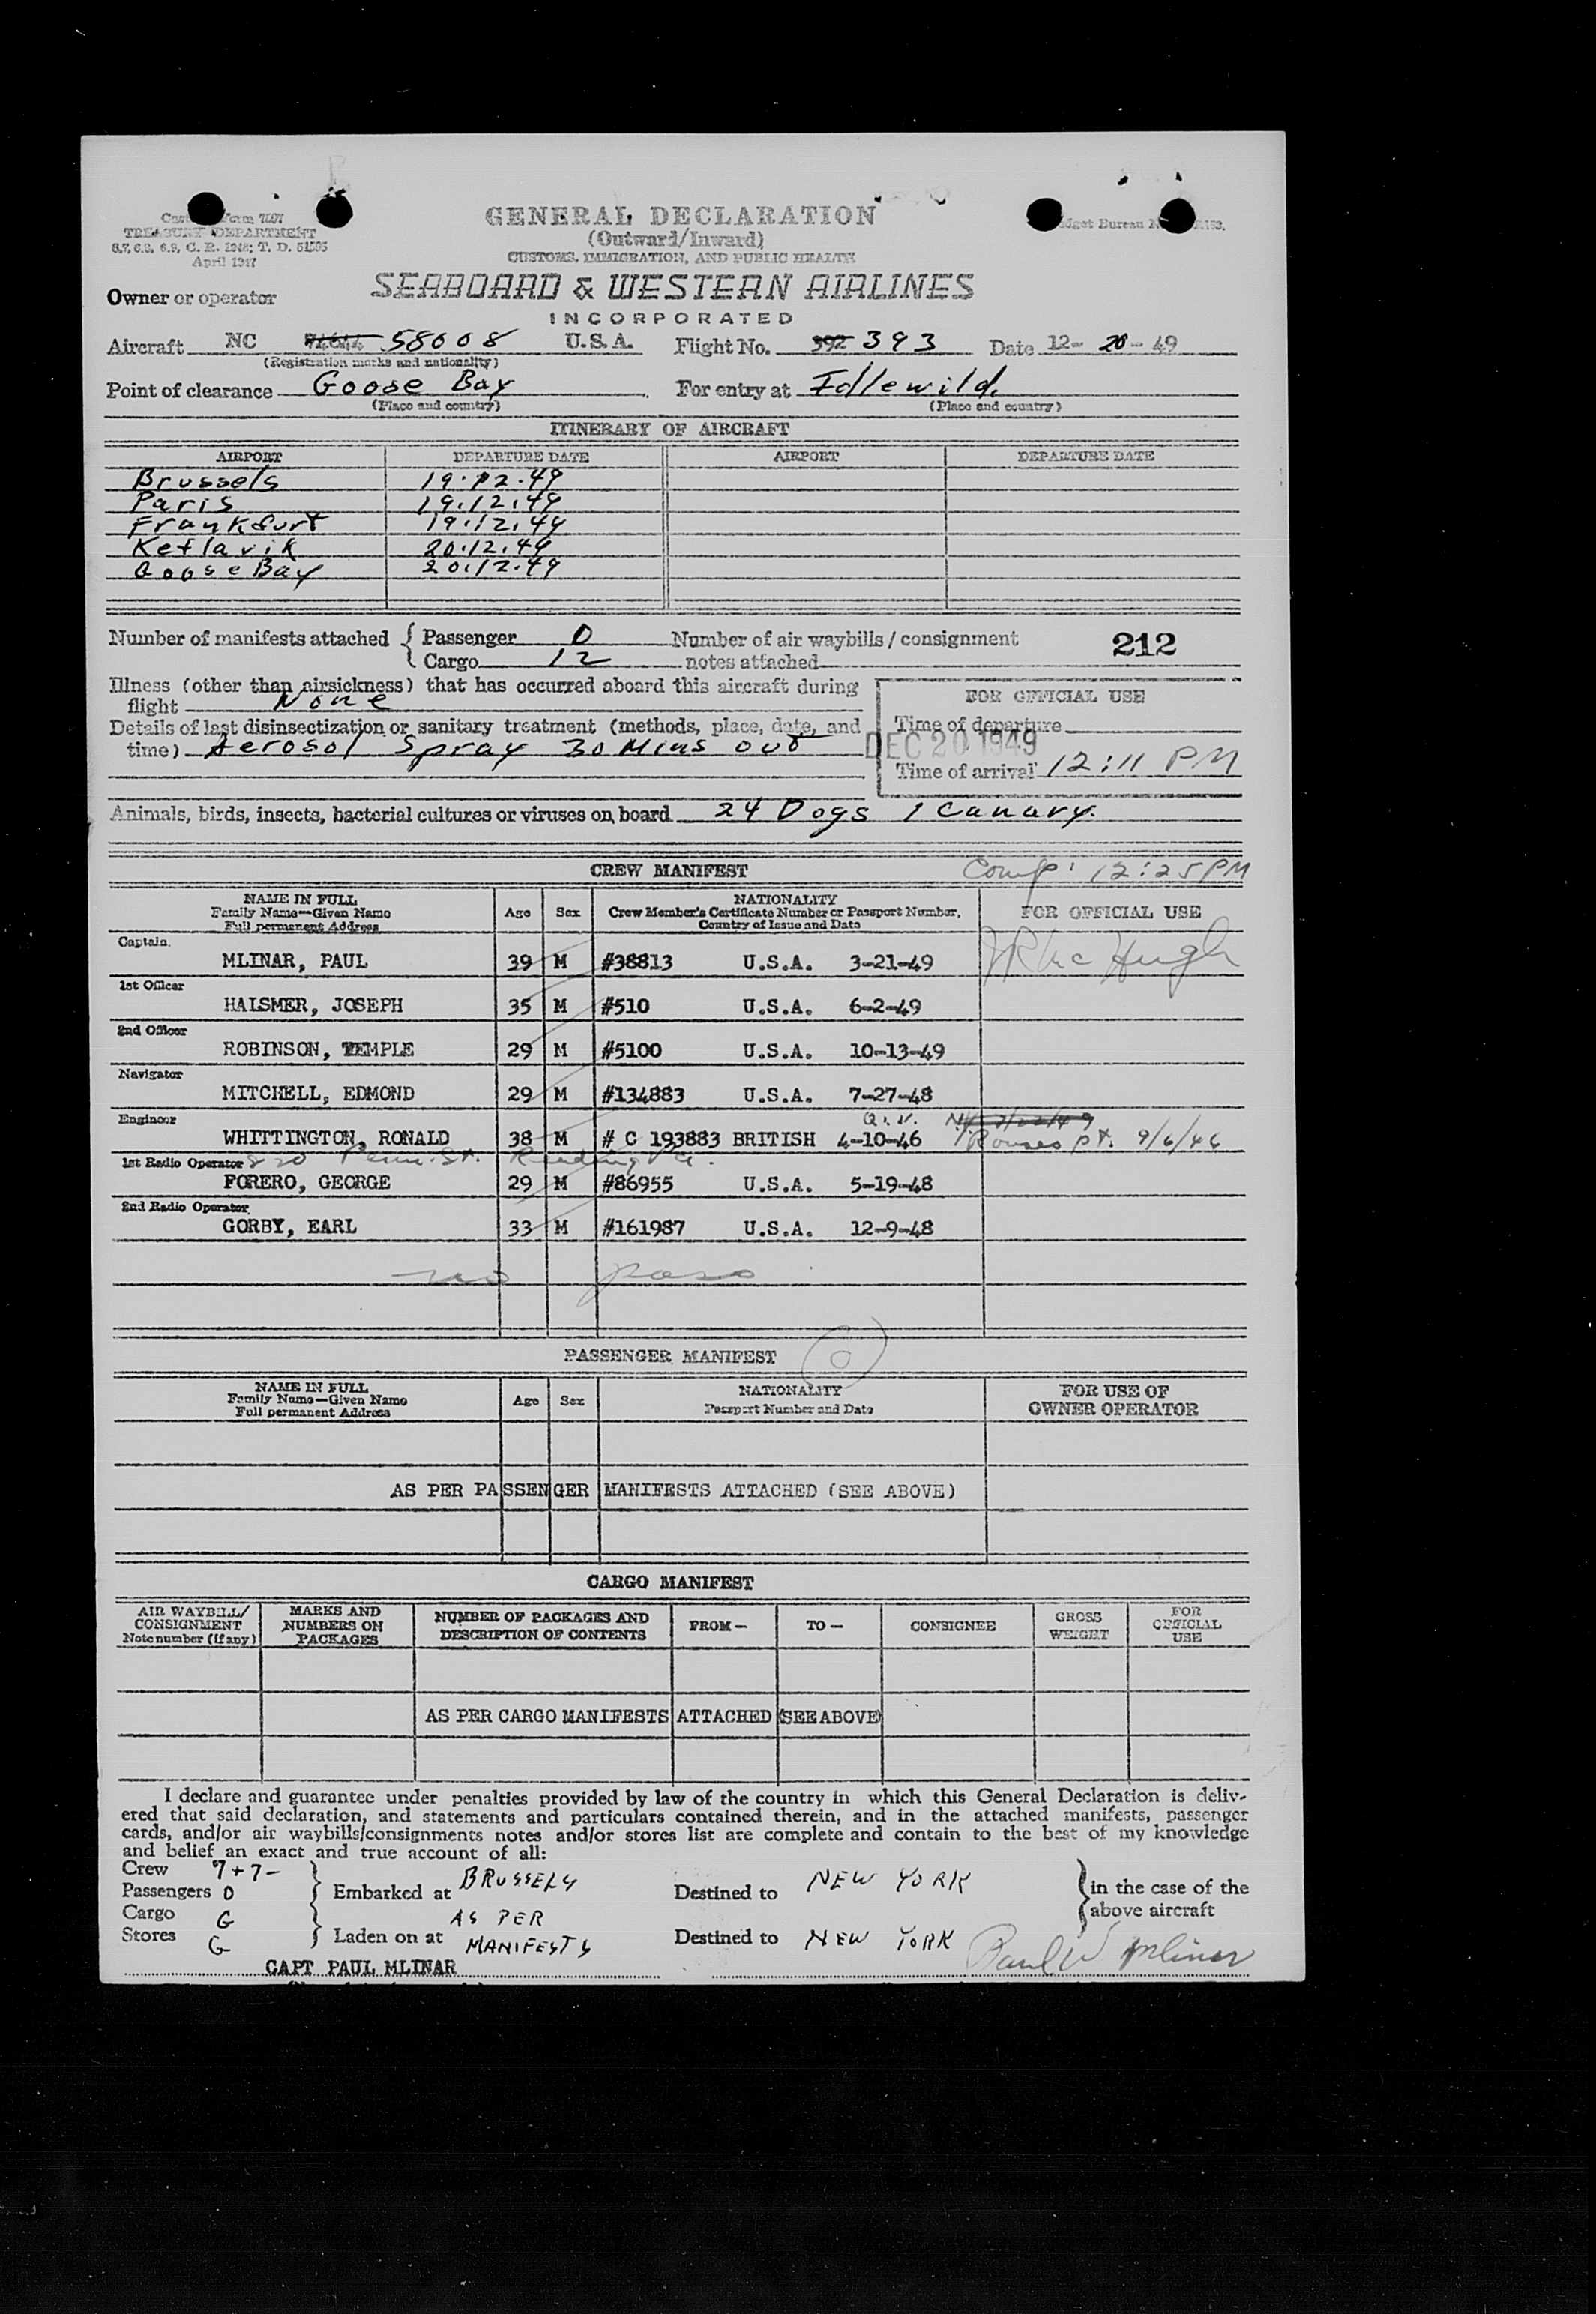 TREASURY DEPARTMENT
April 1947
GENERAL DECLARATION
(Outward/Inward)
CUSTOMS, IMMIGRATION, AND PUBLIC HEALTH
Owner or operator SEABOARD & WESTERN AIRLINES
INCORPORATED
Aircraft NC 58008 U.S.A. Flight No. 392 393 Date 12-20-49
(Registration marks and nationality)
Point of clearance Goose Bay For entry at Idlewild.
(Place and country) (Place and country)
ITINERARY OF AIRCRAFT
AIRPORT DEPARTURE DATE AIRPORT DEPARTURE DATE
Brussels 19.12.49
Paris 19.12.49
Frankfurt 19.12.49
Keflavik 20.12.49
Goose Bay 20.12.49
Number of manifests attached { Passenger 0 Number of air waybills / consignment 212
Cargo 12 notes attached
Illness (other than airsickness) that has occurred aboard this aircraft during
flight None
FOR OFFICIAL USE
Details of last disinsectization or sanitary treatment (methods, place, date, and
time) Aerosol Spray 30 Mins out
Time of departure
DEC 20 1949
Time of arrival 12:11 PM
Animals, birds, insects, bacterial cultures or viruses on board 24 Dogs 1 Canary.
CREW MANIFEST Comp: 12:25 PM
NAME IN FULL
Family Name—Given Name
Full permanent Address
Age Sex
NATIONALITY
Crew Member's Certificate Number or Passport Number,
Country of Issue and Date
FOR OFFICIAL USE
Captain
MLINAR, PAUL 39 M #38813 U.S.A. 3-21-49
1st Officer
HALSMER, JOSEPH 35 M #510 U.S.A. 6-2-49
2nd Officer
ROBINSON, TEMPLE 29 M #5100 U.S.A. 10-13-49
Navigator
MITCHELL, EDMOND 29 M #134883 U.S.A. 7-27-48
Engineer
WHITTINGTON, RONALD 38 M # C 193883 BRITISH 4-10-46 Rouses pt. 9/6/46
1st Radio Operator 220 Penn. St. Reading Pa.
FORERO, GEORGE 29 M #86955 U.S.A. 5-19-48
2nd Radio Operator
GORBY, EARL 33 M #161987 U.S.A. 12-9-48
no pass
PASSENGER MANIFEST 0
NAME IN FULL
Family Name—Given Name
Full permanent Address
Age Sex
NATIONALITY
Passport Number and Date
FOR USE OF
OWNER OPERATOR
AS PER PASSENGER MANIFESTS ATTACHED (SEE ABOVE)
CARGO MANIFEST
AIR WAYBILL/
CONSIGNMENT
Note number (if any)
MARKS AND
NUMBERS ON
PACKAGES
NUMBER OF PACKAGES AND
DESCRIPTION OF CONTENTS
FROM—
TO—
CONSIGNEE
GROSS
WEIGHT
FOR
OFFICIAL
USE
AS PER CARGO MANIFESTS ATTACHED (SEE ABOVE)
I declare and guarantee under penalties provided by law of the country in which this General Declaration is deliv-
ered that said declaration, and statements and particulars contained therein, and in the attached manifests, passenger
cards, and/or air waybills/consignments notes and/or stores list are complete and contain to the best of my knowledge
and belief an exact and true account of all:
Crew 7+7-
Passengers 0 } Embarked at BRUSSELS Destined to NEW YORK } in the case of the
above aircraft
Cargo G
Stores G } Laden on at AS PER MANIFESTS Destined to NEW YORK
Paul W Mlinar
CAPT PAUL MLINAR